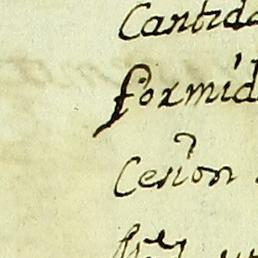 Cantida
formid
Cesion